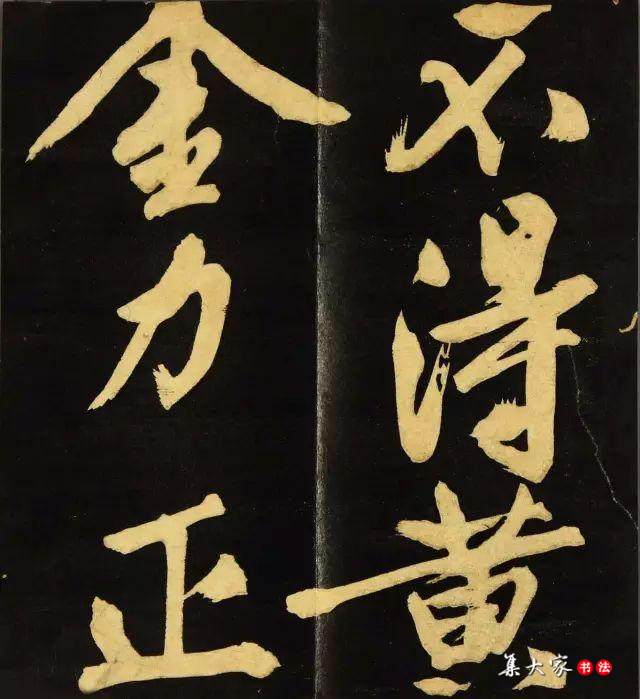 不得黄
金力正
集大家 书法